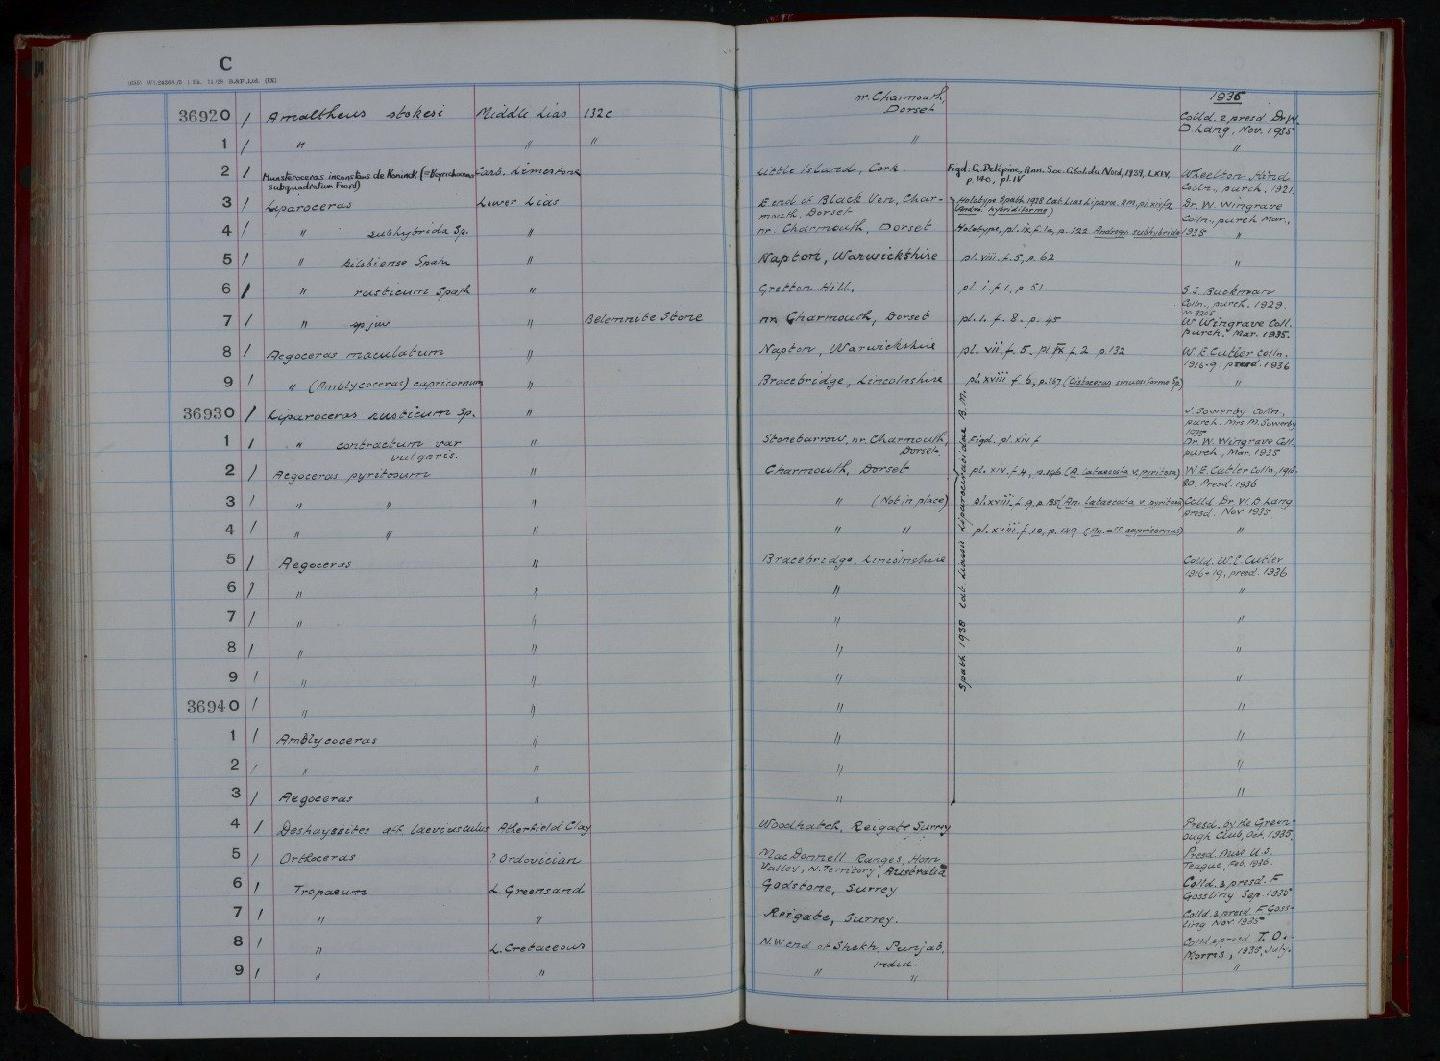 C
36920 / Amaltheus stokesi Middle Lias 132c nr. Charmouth, Dorset 1935 Colld. & presd Dr W. D. Lang, Nov. 1935
1 / " " " " "
2 / Munsteroceras inconstans de Koninck (= subquadratum Foord) Carb. Limestone Little Island, Cork Figd. G. Delépine, Ann. Soc. Géol. du Nord, 1939, LXIV, p. 140, pl. IV Wheelton Hind Colln., purch. 1921.
3 / Liparoceras Lower Lias E end of Black Ven, Charmouth, Dorset Holotype Spath 1938 Cat. Lias Liparo. (Andro. hybridiforme) Dr. W. Wingrave Colln., purch Mar., 1935
4 / " subhybrida Sp. " nr. Charmouth, Dorset Holotype, pl. ix, f. 1a, p. 122 Androgy. subhybrida "
5 / " kilsbiense Spath " Napton, Warwickshire pl. viii. f. 5, p. 62 "
6 / " rusticum Spath " Gretton Hill. pl. i. f. 1, p 51 S. S. Buckman Colln., purch. 1929.
7 / " " Belemnite Stone nr. Charmouth, Dorset pl. i. f. 8. p. 45 W Wingrave Coll. purch. Mar. 1935.
8 / Aegoceras maculatum " Napton, Warwickshire pl. vii. f. 5. pl IX f. 2 p. 132 W. E. Cutler Colln. 1916-9 presd 1936
9 / " (Amblycoceras) capricornum " Bracebridge, Lincolnshire pl. xviii f. 6, p. 167 (Oistoceras sinuosiforme Sp.) "
36930 / Liparoceras rusticum Sp. " J. Sowerby Colln., purch. Mrs M. Sowerby 1935
1 / " contractum var vulgaris. " Stonebarrow, nr. Charmouth, Dorset. Figd. pl. xiv f Dr. W. Wingrave Coll. purch, Mar. 1935
2 / Aegoceras pyritosum " Charmouth, Dorset pl. xiv. f. 4, p. 146 (A. lataecosta v. pyritosa) W. E. Cutler Colln, 1916-20. Presd. 1936
3 / " " " " (Not in place) pl. xviii. f. 9, p. (An. lataecosta v. pyritosa) Colld Dr. W. D. Lang presd. Nov 1935
4 / " " " " " pl. xviii. f. 10, p. 149 (capricornus) "
5 / Aegoceras " Bracebridge, Lincolnshire Colld. W. E. Cutler 1916-19, presd. 1936
6 / " " " "
7 / " " " "
8 / " " " "
9 / " " " "
36940 / " " " "
1 / Amblycoceras " " "
2 / " " " "
3 / Aegoceras " " "
Spath 1938 Cat. Liassic Liparoceratidae B.M.
4 / Deshayesites aff. laeviusculus Atherfield Clay Woodhatch, Reigate Surrey Presd. by the Greenough Club, Oct. 1935.
5 / Orthoceras ? Ordovician MacDonnell Ranges, Horn Valley, N. Territory, Australia Presd. Miss U. S. Teague, Feb. 1936.
6 / Tropaeum L. Greensand Godstone, Surrey Colld. & presd. F Gossling Sep. 1935
7 / " " Reigate, Surrey. Colld. & presd F Gossling Nov. 1935
8 / " L. Cretaceous N.W end of Sheikh Punjab, India Colld & presd T. O. Morris, 1935, July.
9 / " " " " "